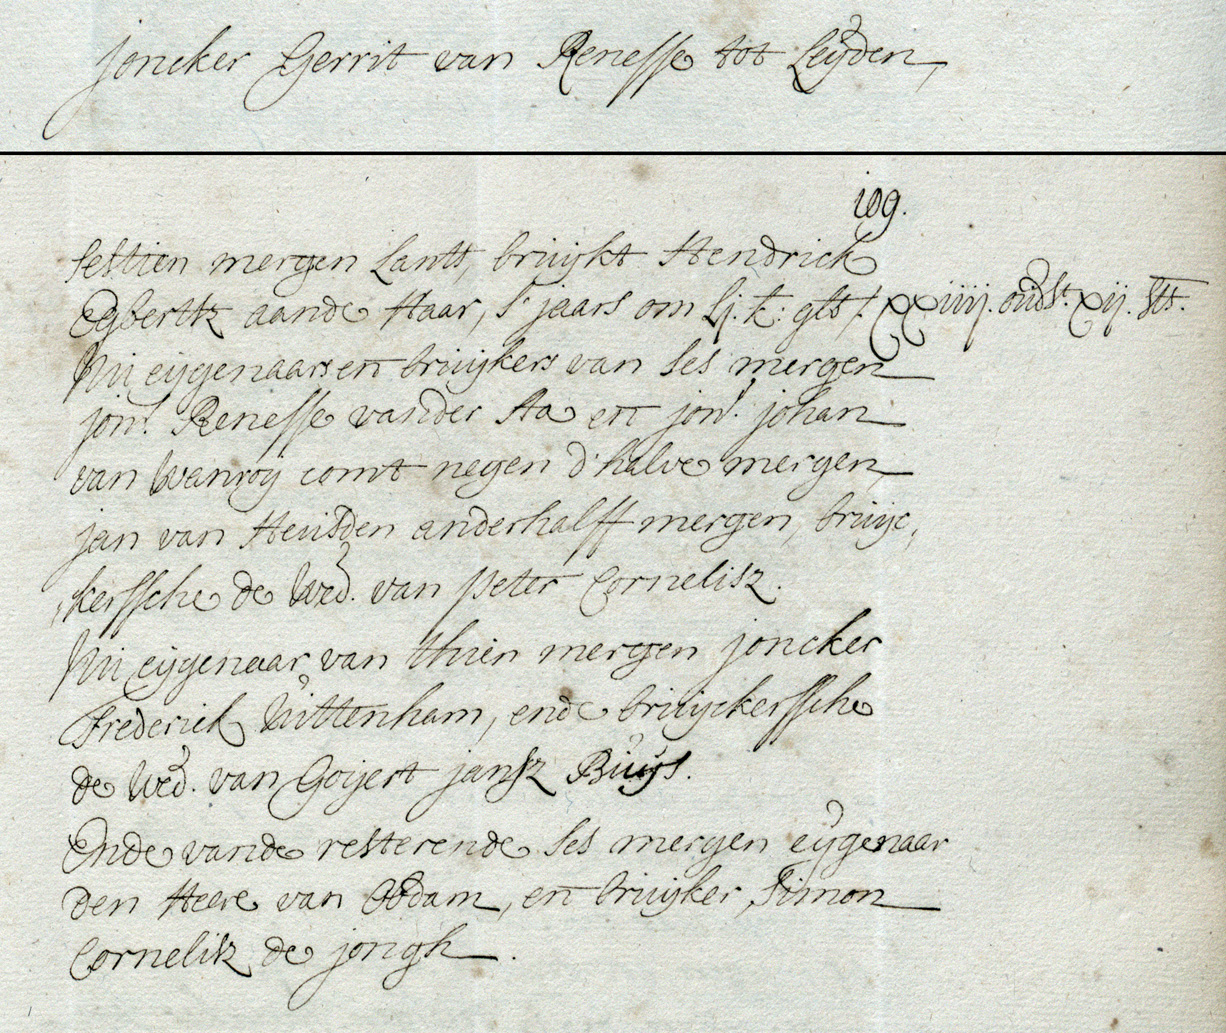 joncker Gerrit van Renesse tot Leijden,
109.
sestien mergen Lantt, bruijkt Hendrick
Egbertsz aande Haar, s' jaars om Lj. k: glt /. xxiiij. oudst. xij. st.
Nu eijgenaars en bruijkers van ses mergen
jonr. Renesse vander Aa en jonr. johan
van Wanroij comt negen d'halve mergen,
jan van Heusden anderhalff mergen, bruijc,
,kerssche de Wed. van peter Cornelisz.
Nu eijgenaar van thien mergen joncker
Frederick Uittenham, ende bruijckerssche
de Wed. van Goijert jansz Buijs.
Ende vande resterende ses mergen eijgenaar
den Heere van Obdam, en bruijker Simon
Cornelisz de jongh.